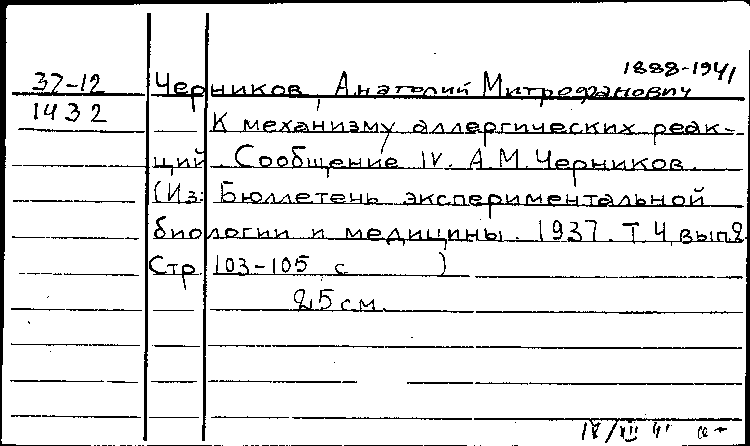 1888-1941
37-12 Черников, Анатолий Митрофанович
1432 К механизму аллергических реак-
ций. Сообщение IV. А.М. Черников.
(Из: Бюллетень экспериментальной
биологии и медицины. 1937. Т. 4, вып 2
Стр 103-105 с )
25 см.
IV/XII